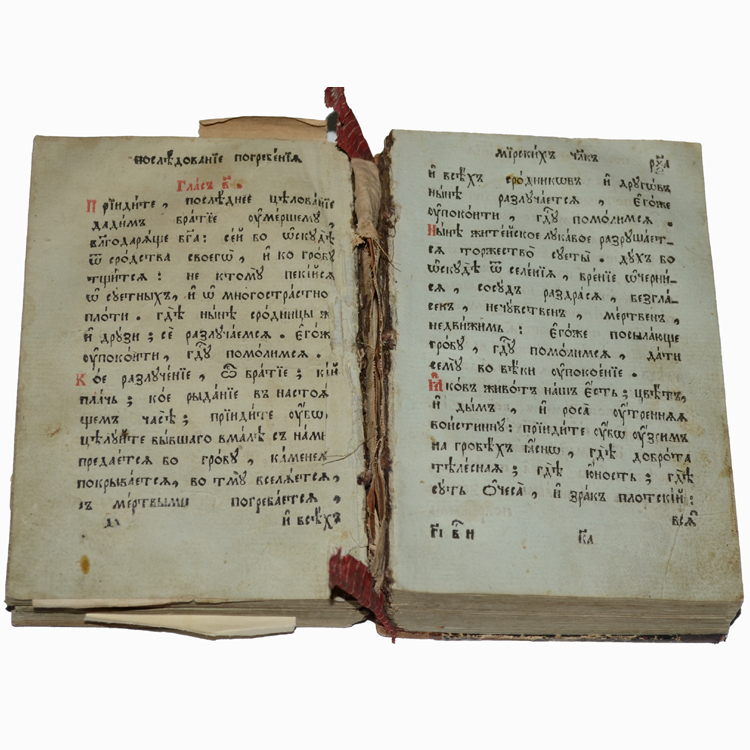 Послѣдованїе погребенїѧ
Гласъ в҃.
Прїиди́те, послѣднее цѣлованїе
дадимъ братїе ᲂу҆мершему,
бл҃годарѧще бг҃а: се́й бо ѡ҆скꙋдѣ
ѿ сродства своегѡ̀, и҆ ко гробꙋ
тщитсѧ: не ктомꙋ пекі́йсѧ
ѡ҆ сꙋетныхъ, и҆ ѡ҆ многострастно
плоти. гдѣ̀ ны́нѣ сро́дницы ж
и҆ дрꙋзи; сѐ разлꙋча́емсѧ. є҆го́ж
ᲂу҆поко́ити, гдⷭ҇ꙋ помо́лимсѧ.
Ко́е разлꙋче́нїе, ѽ братїе; кі́й
пла́чь; ко́е рыда́нїе въ настоѧ
щемъ часѣ̀; прїиди́те ᲂу҆̀бѡ
цѣлꙋ́йте бы́вшаго вма́лѣ съ на́ми
предае́тсѧ бо гро́бꙋ, ка́менем
покрыва́етсѧ, во тмꙋ̀ вселѧ́етсѧ,
съ ме́ртвыми погреба́етсѧ,
и҆ всѣ́хъ
мїрскихъ чл҃къ
и҆ всѣхъ сро́дникѡвъ и҆ дрꙋгѡ́въ
ны́нѣ разлꙋчае́тсѧ, є҆го́же
ᲂу҆поко́ити, гдⷭ҇ꙋ помо́лимсѧ.
Ны́нѣ жите́йское лꙋка́вое разрꙋша́ет-
сѧ торжество̀ сꙋеты̀. дꙋ́хъ бо
ѡ҆скꙋдѣ̀ ѿ селе́нїѧ, бре́нїе ѡ҆черни́-
сѧ, сосꙋ́дъ раздра́сѧ, безгла́-
сенъ, нечꙋ́вственъ, ме́ртвенъ,
недви́жимъ: є҆го́же посыла́юще
гро́бꙋ, гдⷭ҇ꙋ помо́лимсѧ, да́ти
семꙋ̀ во вѣ́ки ᲂу҆покое́нїе.
Ꙗ҆ко́въ живо́тъ на́шъ є҆́сть; цвѣ́тъ,
и҆ ды́мъ, и҆ роса̀ ᲂу҆́треннѧѧ
вои́стиннꙋ: прїиди́те ᲂу҆̀бѡ ᲂу҆́зримъ
на гробѣ́хъ ꙗ҆́снѡ, гдѣ̀ добро́та
тѣле́снаѧ; гдѣ̀ ю҆́ность; гдѣ̀
сꙋ́ть ѻ҆чеса̀, и҆ зра́къ пло́тскїй:
всѧ̑
г҃і в҃ и҃ к҃а